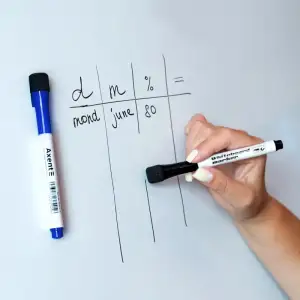 d m % =
mond june 80
Axent